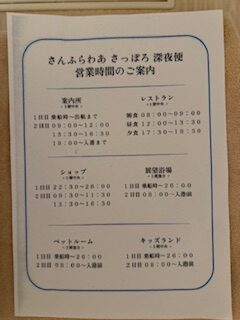 さんふらわあ さっぽろ 深夜便
営業時間のご案内
案内所
1日目 乗船時～出航まで
2日目 09:00～12:00
15:30～16:30
18:00～入港まで
レストラン
朝食 08:00～09:00
昼食 12:00～13:30
夕食 17:30～18:30
ショップ
1日目 22:30～26:00
2日目 09:30～11:30
13:30～16:30
展望浴場
1日目 乗船時～26:00
2日目 08:00～入港前
ペットルーム
1日目 乗船時～26:00
2日目 08:00～入港前
キッズランド
1日目 乗船時～26:00
2日目 08:00～入港前